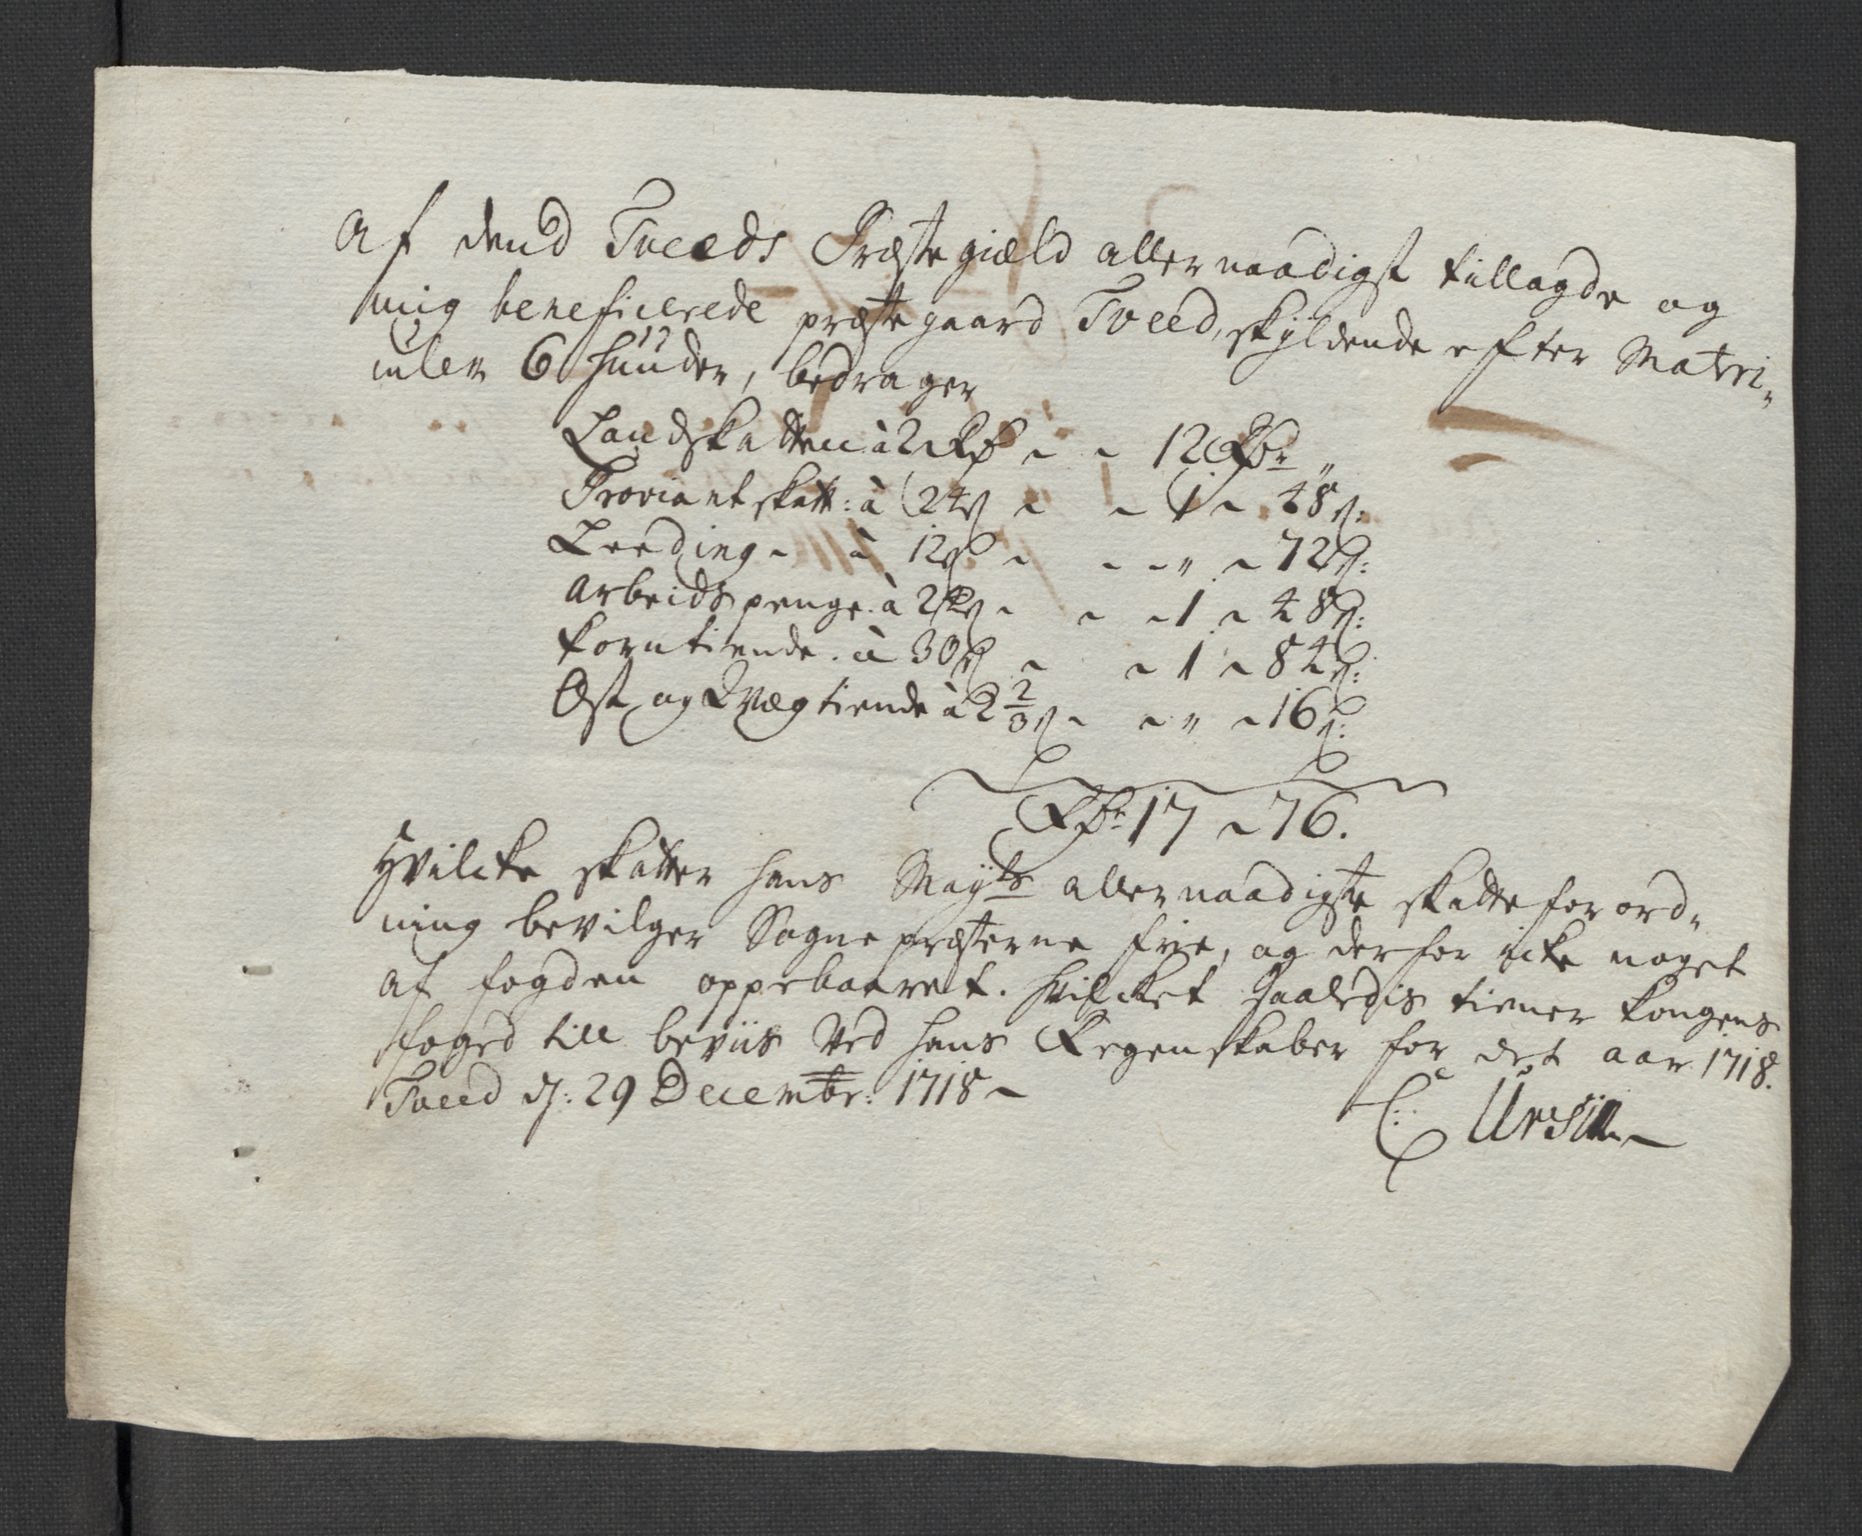 Af dend Tveeds Præstegiæld allernaadigst tillagde og
mig beneficerede præstegaard Tveed, skyldende efter Matri-
culen 6 huuder, bedrager
Landskatten à 2 Rdr ~ ~ 12 Rdr „
Proviantskatt: à 24 s ~ ~ 1 ~ 48 s:
Leeding ~ à 12 s ~ ~ ~ „ ~ 72 s:
Arbeidspenge à 24 s ~ ~ ~ 1 ~ 48 s:
Korntiende. à 30 s ~ ~ 1 ~ 84 s:
Ost og Qvægtiende à 2 2/3 s ~ ~ „ ~ 16 s:
Rdr 17 ~ 76.
Hvilcke skatter hans Mayts allernaadigste skatteforord-
ning bevilger Sognepræsterne frie, og derfor icke noget
af fogden oppebaaret. Hvilcket saaledis tiener Kongens
foged till beviis ved hans Regenskaber for det aar 1718.
Tveed d: 29 Decembr: 1718 ~
C: Ursin